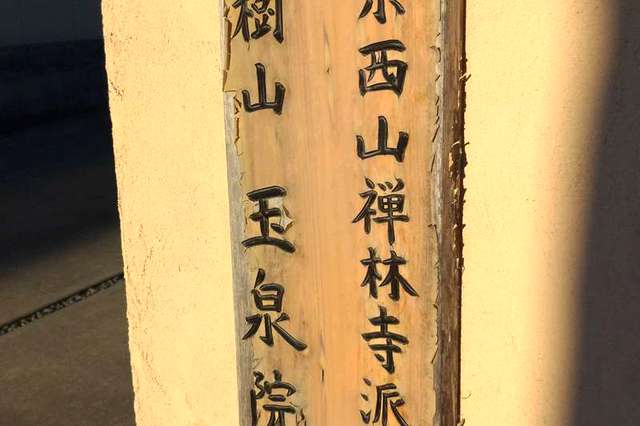 西山禅林寺派
樹山 玉泉院